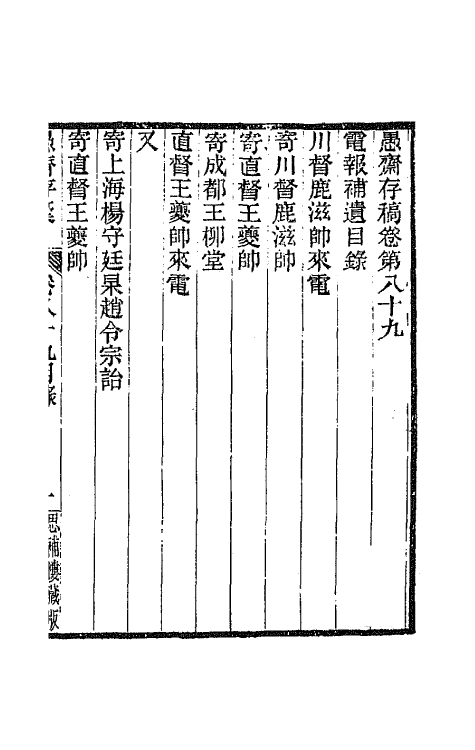 愚齋存稿卷第八十九
電報補遺目錄
川督鹿滋帥來電
寄川督鹿滋帥
寄直督王夔帥
寄成都王柳堂
直督王夔帥來電
又
寄上海楊守廷杲趙令宗詒
寄直督王夔帥
愚齋存稿 卷八十九目錄 一 思補樓藏版